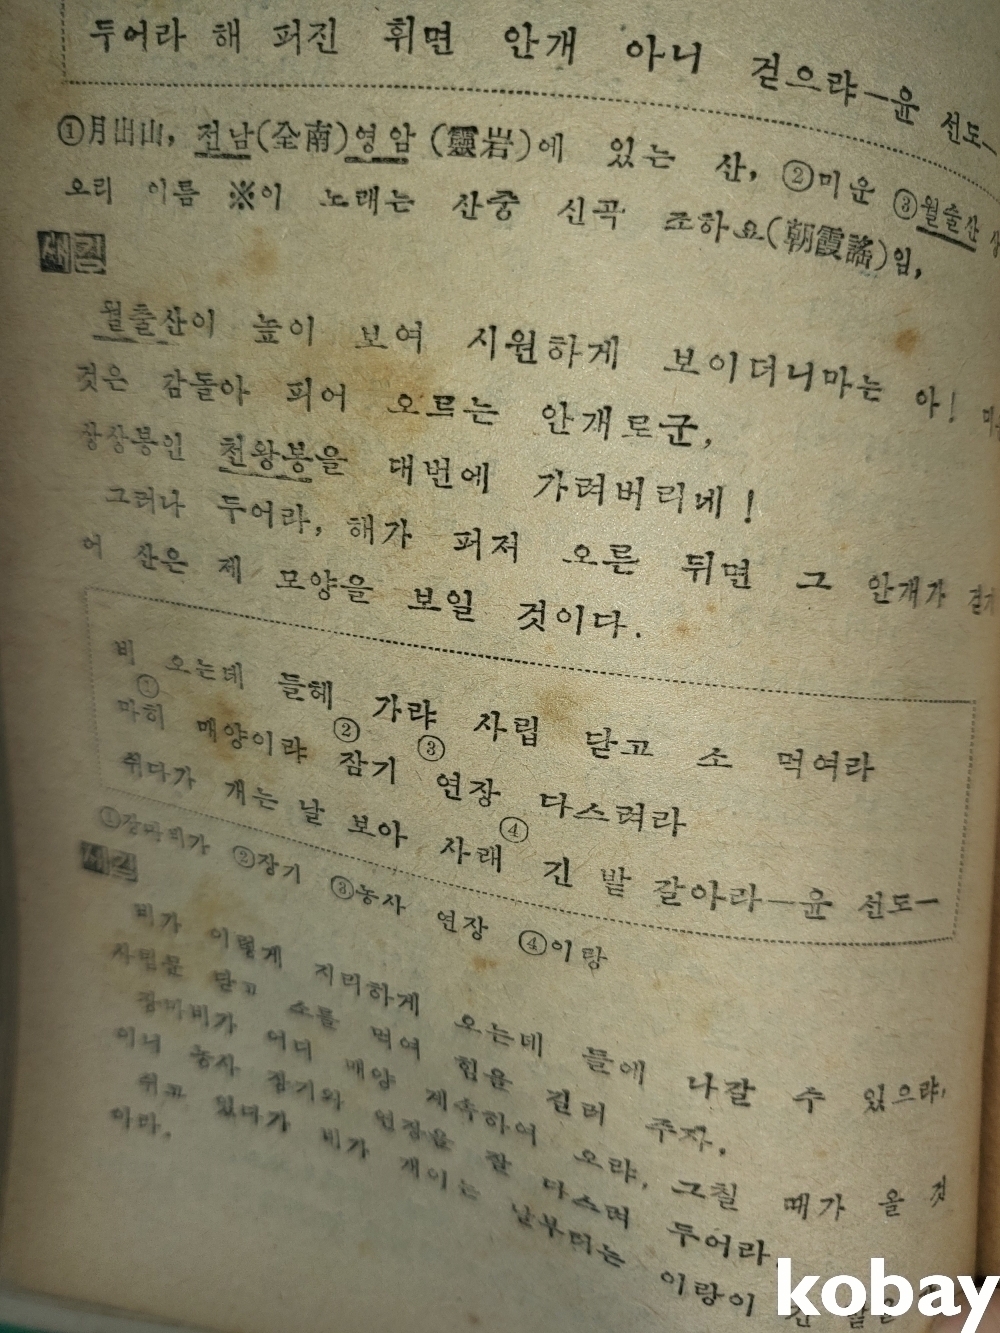 두어라 해 퍼진 휘면 안개 아니 걷으랴—윤 선도—
①月出山, 전남(全南)영암 (靈岩)에 있는 산, ②미운 ③월출산 상
오리 이름 ※이 노래는 산중 신곡 조하요(朝霞謠)임,
새김
월출산이 높이 보여 시원하게 보이더니마는 아!
것은 감돌아 피어 오르는 안개로군,
상상봉인 천왕봉을 대번에 가려버리네!
그러나 두어라, 해가 퍼저 오른 뒤면 그 안개가 걷
어 산은 제 모양을 보일 것이다.
비 오는데 들헤 가랴 사립 닫고 소 먹여라
①
마히 매양이랴 잠기 연장 다스려라
② ③
쉬다가 개는 날 보아 사래 긴 밭 갈아라—윤 선도—
④
①장마비가 ②장기 ③농사 연장 ④이랑
새김
비가 이렇게 지리하게 오는데 들에 나갈 수 있으랴,
사립문 닫고 소를 먹여 힘을 길러 주자.
장마비가 어디 매양 계속하여 오랴, 그칠 때가 올 것
이니 농사 잠기와 연장을 잘 다스려 두어라.
쉬고 있다가 비가 개이는 날부터는 이랑이 긴
아라.
kobay